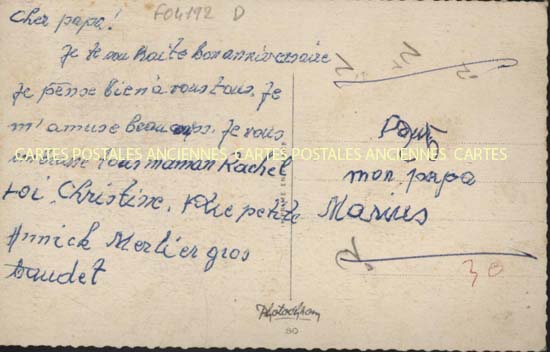 Cher papa!
F04192 D
Je te souhaite bon anniversaire
Je pense bien à vous tous. Je
m'amuse beaucoup. Je vous
tous maman Rachel
toi. Christine. petite
Annick Merlier gros
baudet
CARTES POSTALES ANCIENNES CARTES POSTALES ANCIENNES CARTES
mon papa
Marius
30
Photochrom
80